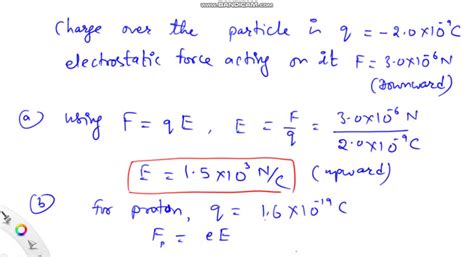 WWW.BANDICAM.COM
Charge over the particle is q = -2.0×10⁻⁹C
electrostatic force acting on it F = 3.0×10⁻⁶N
(Downward)
(a) using F = qE, E = F/q = 3.0×10⁻⁶ N / 2.0×10⁻⁹C
E = 1.5×10³ N/C (upward)
(b) for proton, q = 1.6×10⁻¹⁹ C
Fₚ = eE